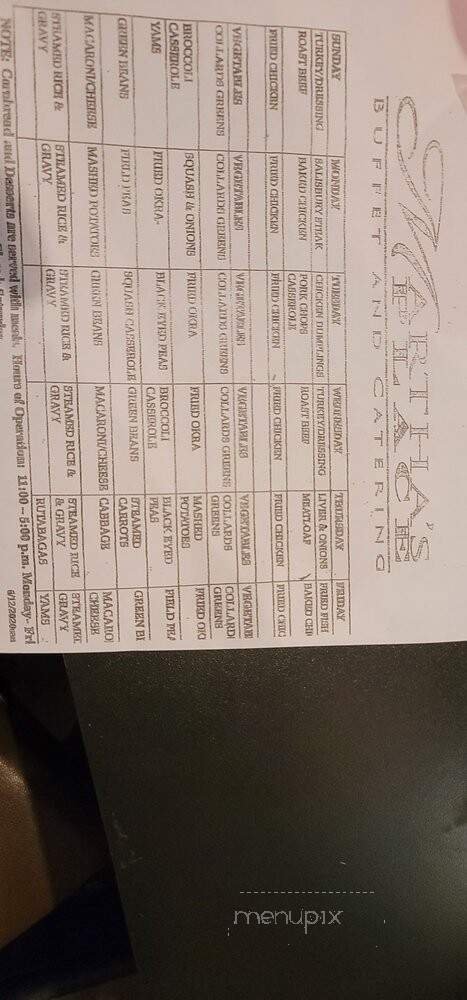 MARTHA'S
PLACE
BUFFET AND CATERING
SUNDAY MONDAY TUESDAY WEDNESDAY THURSDAY FRIDAY
TURKEY/DRESSING SALISBURY STEAK CHICKEN DUMPLINGS TURKEY/DRESSING LIVER & ONIONS FRIED FISH
ROAST BEEF BAKED CHICKEN PORK CHOPS ROAST BEEF MEATLOAF BAKED CHI
CASSEROLE
FRIED CHICKEN FRIED CHICKEN FRIED CHICKEN FRIED CHICKEN FRIED CHICKEN FRIED CHIC
VEGETABLES VEGETABLES VEGETABLES VEGETABLES VEGETABLES VEGETABL
COLLARDS GREENS COLLARDS GREENS COLLARDS GREENS COLLARDS GREENS COLLARDS COLLARD
GREENS GREENS
BROCCOLI SQUASH & ONIONS FRIED OKRA FRIED OKRA MASHED FRIED OK
CASSEROLE POTATOES
YAMS FRIED OKRA BLACK EYED PEAS BROCCOLI BLACK EYED FIELD PEA
CASSEROLE PEAS
GREEN BEANS FIELD PEAS SQUASH CASSEROLE GREEN BEANS STEAMED GREEN BE
CARROTS
MACARONI/CHEESE MASHED POTATOES GREEN BEANS MACARONI/CHEESE CABBAGE MACARO
CHEESE
STEAMED RICE & STEAMED RICE & STEAMED RICE & STEAMED RICE & STEAMED RICE STEAMED
GRAVY GRAVY GRAVY GRAVY & GRAVY GRAVY
RUTABAGAS YAMS
NOTE: Cornbread and Desserts are served with meals. Hours of Operation: 11:00 – 5:00 p.m. Monday- Fri
6/12/2020
menupix